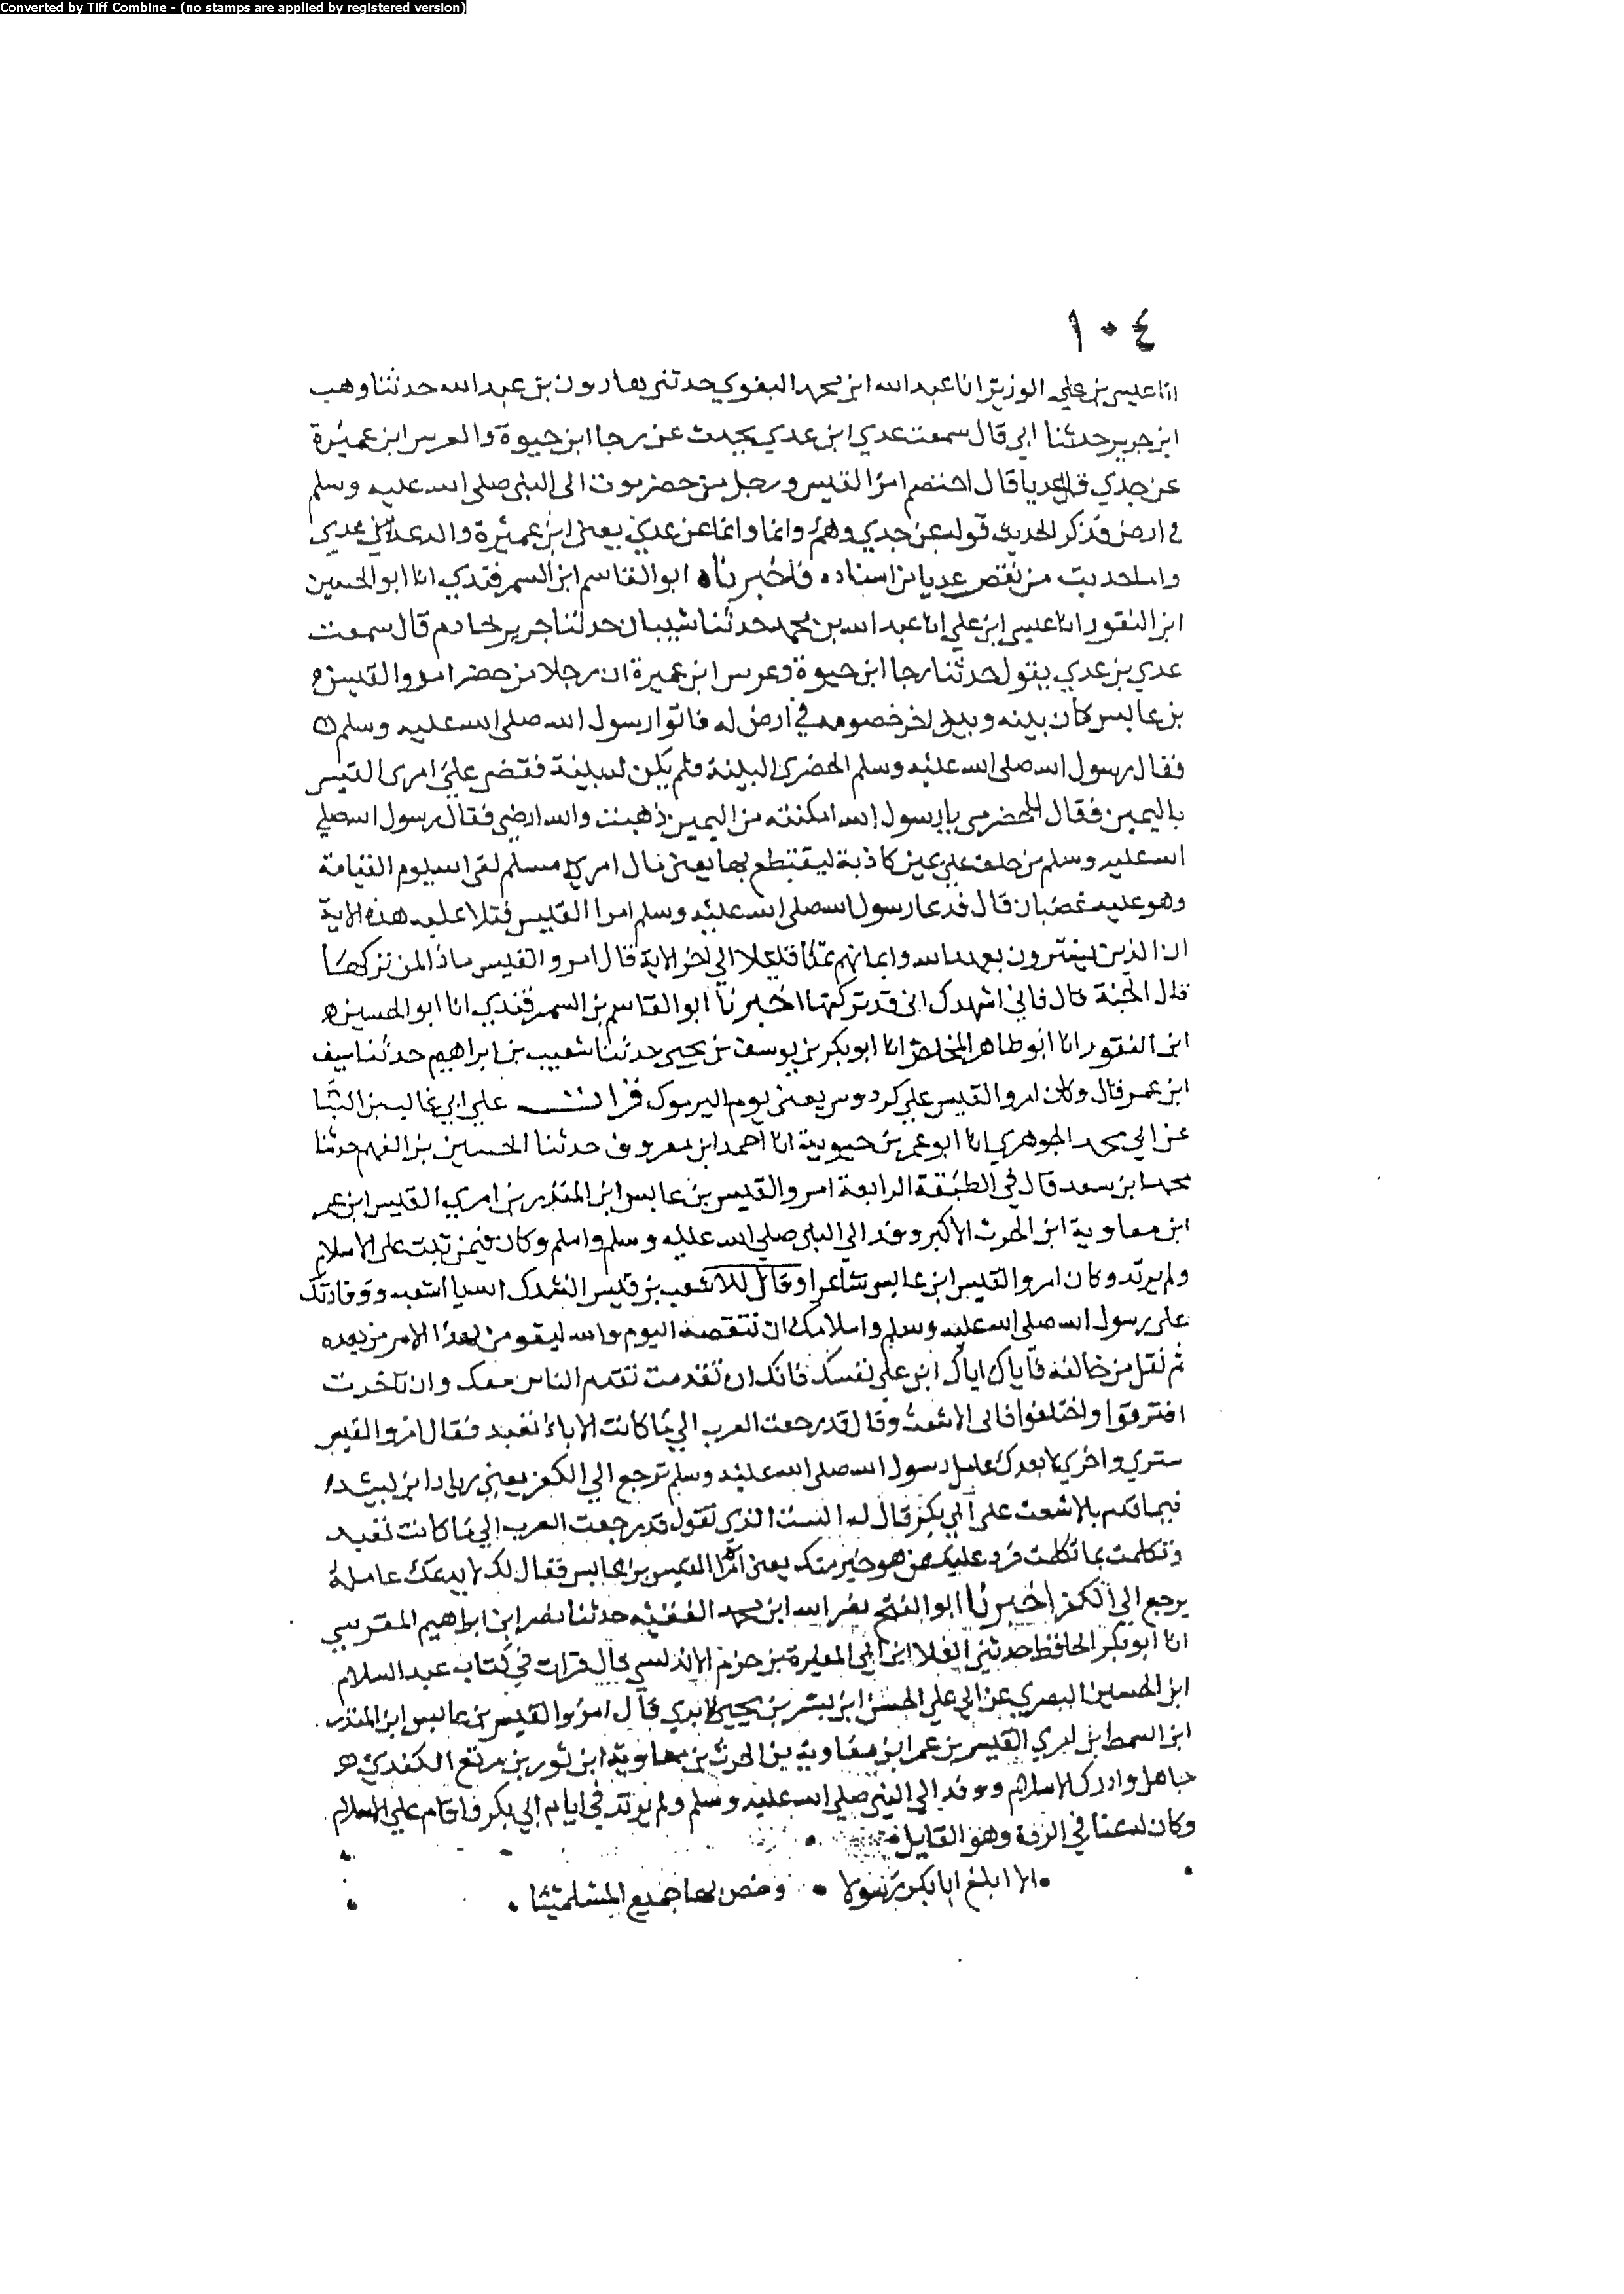 Converted by Tiff Combine - (no stamps are applied by registered version)
١٠٤
انا عيسى بن علي الوزير انا عبد الله ابن محمد البغوي حدثني هارون بن عبد الله حدثنا وهب
ابن جرير حدثنا ابي قال سمعت عدي ابن عدي يحدث عن رجا ابن حيوة والعرس ابن عميرة
عن جدي قال عديا قال اختصم امرؤ القيس ورجل من حضرموت الى النبي صلى الله عليه وسلم
في ارض فذكر الحديث قوله عن جدي وهم وانما وانما عن عدي يعني ابن عميرة والد عدي بن عدي
واما حديث من نقص عديا من اسناده فاخبرناه ابو القاسم ابن السمرقندي انا ابو الحسين
ابن النقور انا عيسى ابن علي انا عبد الله بن محمد حدثنا شيبان حدثنا جرير بن حازم قال سمعت
عدي بن عدي يقول حدثنا رجا ابن حيوة وعرس ابن عميرة ان رجلا من حضر امرو القيس
بن عابس كان بينه وبين اخر خصومه في ارض له فاتوا رسول الله صلى الله عليه وسلم
فقال رسول الله صلى الله عليه وسلم الحضري البينة فلم يكن له بينة فقضى علي امرى القيس
باليمين فقال الحضرمي يا رسول الله امكنته من اليمين ذهبت والله ارضي فقال رسول الله صلي
الله عليه وسلم من حلف علي يمين كاذبة ليقتطع بها يعني مال امري مسلم لقى الله يوم القيامة
وهو عليه غضبان قال فدعا رسول الله صلى الله عليه وسلم امرا القيس فتلا عليه هذه الاية
ان الذين يشترون بعهد الله وايمانهم ثمنا قليلا الي اخر الاية قال امرو القيس ماذا لمن تركها
قال الجنة قال فاني اشهدك انى قد تركتها اخبرنا ابو القاسم بن السمرقندي انا ابو الحسين
ابن النقور انا ابو طاهر المخلص انا ابو بكر بن يوسف بن يحيى حدثنا شعيب بن ابراهيم حدثنا سيف
ابن عمر قال وكان امرو القيس علي كردوس يعني يوم اليرموك قرات علي ابي غالب بن البنا
عن ابي محمد الجوهري انا ابو عمر بن حيوية انا احمد ابن معروف حدثنا الحسين بن الفهم حدثنا
محمد ابن سعد قال في الطبقة الرابعة امرو القيس بن عابس ابن المنذر بن امري القيس ابن عمر
ابن معاوية ابن الحرث الاكبر وفد الي النبي صلي الله عليه وسلم واسلم وكان فيمن ثبت على الاسلام
ولم يرتد وكان امرو القيس ابن عابس شاعرا وقال للاشعب بن قيس انشدك الله يا اشعب ووفادتك
على رسول الله صلى الله عليه وسلم واسلامك ان تنقصه اليوم والله ليقومن بهذا الامر من بعده
ثم نقتل من خالفه فاياك اياك ابق على نفسك فانك ان تقدمت تقدم الناس معك وان تاخرت
افترقوا واختلفوا فابى الاشعث وقال قد رجعت العرب الي ما كانت الاباء تعبد فقال امرو القيس
سترى واخري لا يدعك عامل رسول الله صلى الله عليه وسلم ترجع الي الكفر يعني زياد ابن لبيد
فيما قدم بالاشعث على ابي بكر قال له الست الذي تقول قد رجعت العرب الي ما كانت تعبد
وتكلمت بما تكلمت فرد عليك من هو خير منك يعني امرا القيس بن عابس فقال لك لا يدعك عامله
يرجع الي الكفر اخبرنا ابو الفتح نصر الله ابن محمد الفقيه حدثنا نصر ابن ابراهيم المقدسي
انا ابو بكر الحافظ حدثني العلا ابن ابي المغيرة بن حزم الاندلسي قال قرات في كتاب عبد السلام
ابن الحسين البصري عن ابي علي الحسن ابن بشر بن يحيى الامدي قال امرؤ القيس بن عابس ابن المنذر
ابن السمط ابن امري القيس بن عمر ابن معاوية بن الحرث بن معاوية ابن ثور بن مرتع الكندي
جاهل وادرك الاسلام ووفد الي النبي صلي الله عليه وسلم ولم يرتد في ايام ابي بكر فاقام علي الاسلام
وكان له عنا في الردة وهو القايل
الا ابلغ ابا بكر رسولا وخص بها جميع المسلمينا